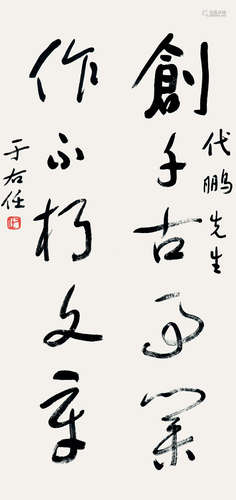 代鹏先生
創千古事業
作不朽文章
于右任